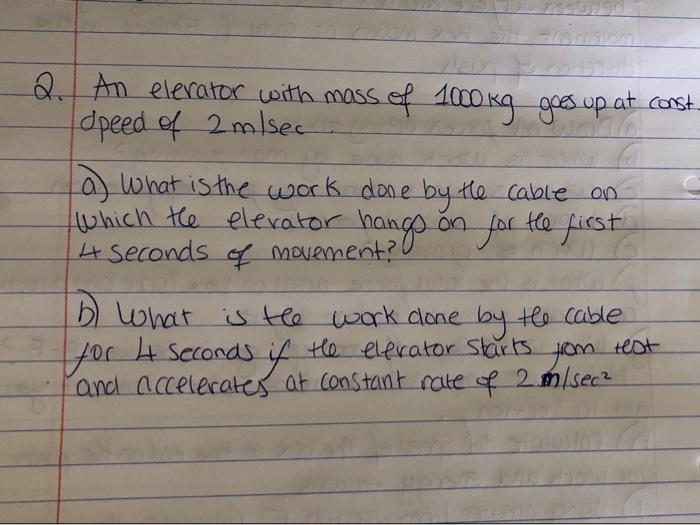 2. An elevator with mass of 1000 kg goes up at const.
speed of 2 m/sec
a) What is the work done by the cable on
which the elevator hangs on for the first
4 seconds of movement?
b) What is the work done by the cable
for 4 seconds if the elevator starts from rest
and accelerates at constant rate of 2 m/sec²